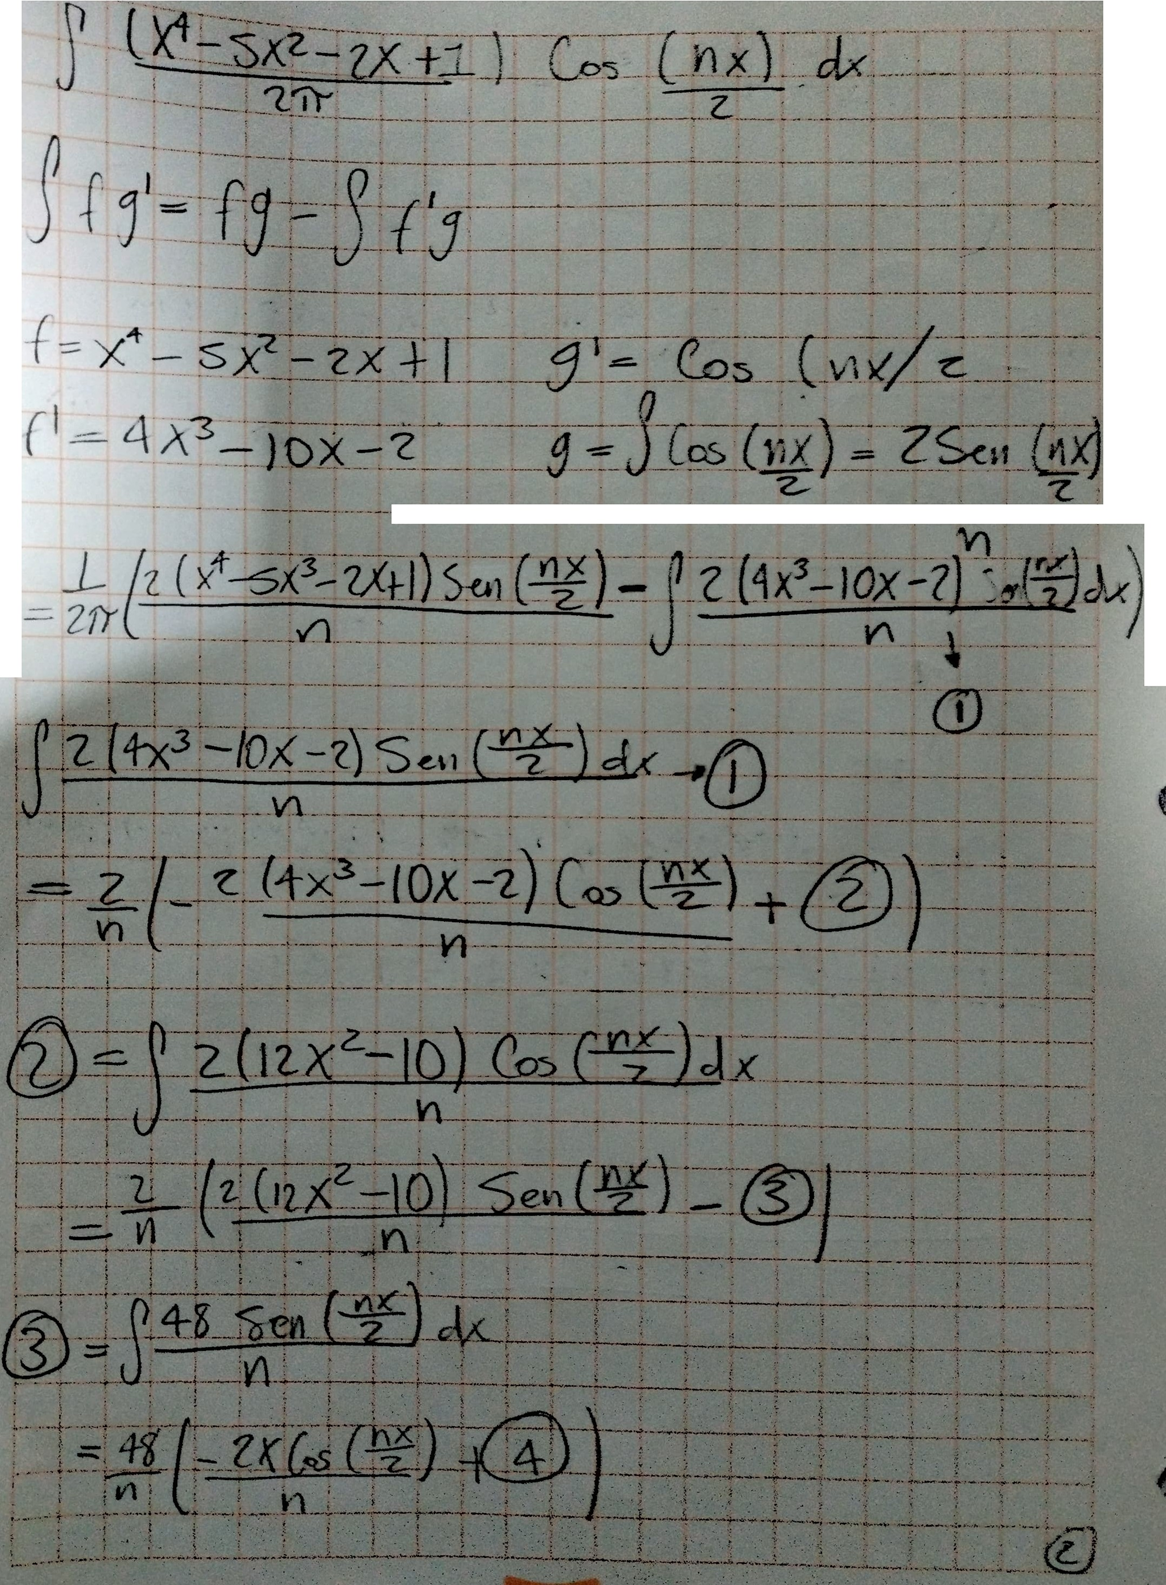 ∫ (x⁴-5x²-2x+1)/2π Cos (nx)/2 dx
∫ fg' = fg - ∫ f'g
f = x⁴ - 5x² - 2x + 1 g' = Cos (nx/2
f' = 4x³ - 10x - 2 g = ∫ Cos (nx/2) = 2 Sen (nx/2)
n
= 1/2π (2(x⁴-5x³-2x+1) Sen (nx/2)/n - ∫ 2(4x³-10x-2) Sen(nx/2)/n dx)
↓
①
∫ 2(4x³-10x-2) Sen (nx/2)/n dx → ①
= 2/n (- 2(4x³-10x-2) Cos (nx/2)/n + ②)
② = ∫ 2(12x²-10) Cos (nx/2)/n dx
= 2/n (2(12x²-10) Sen (nx/2)/n - ③)
③ = ∫ 48 Sen (nx/2)/n dx
= 48/n (- 2x Cos (nx/2)/n + ④)
②